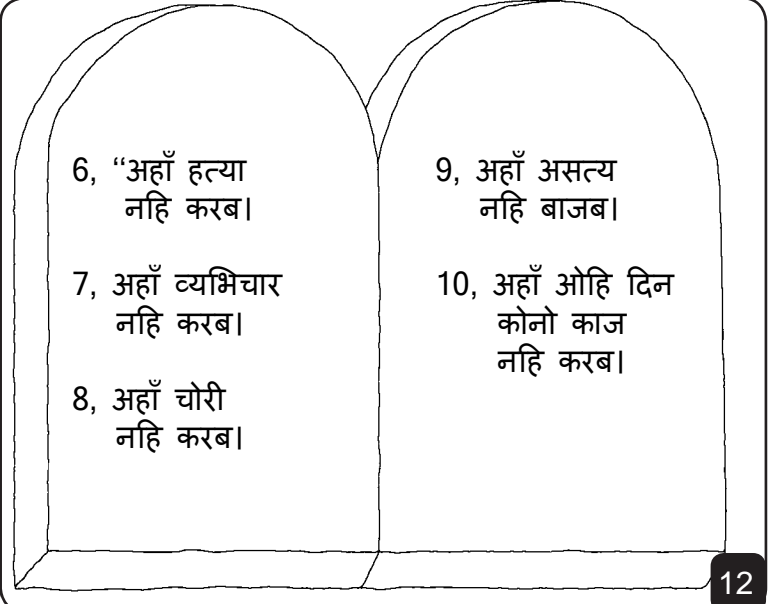 6, “अहाँ हत्या
नहि करब।
7, अहाँ व्यभिचार
नहि करब।
8, अहाँ चोरी
नहि करब।
9, अहाँ असत्य
नहि बाजब।
10, अहाँ ओहि दिन
कोनो काज
नहि करब।
12